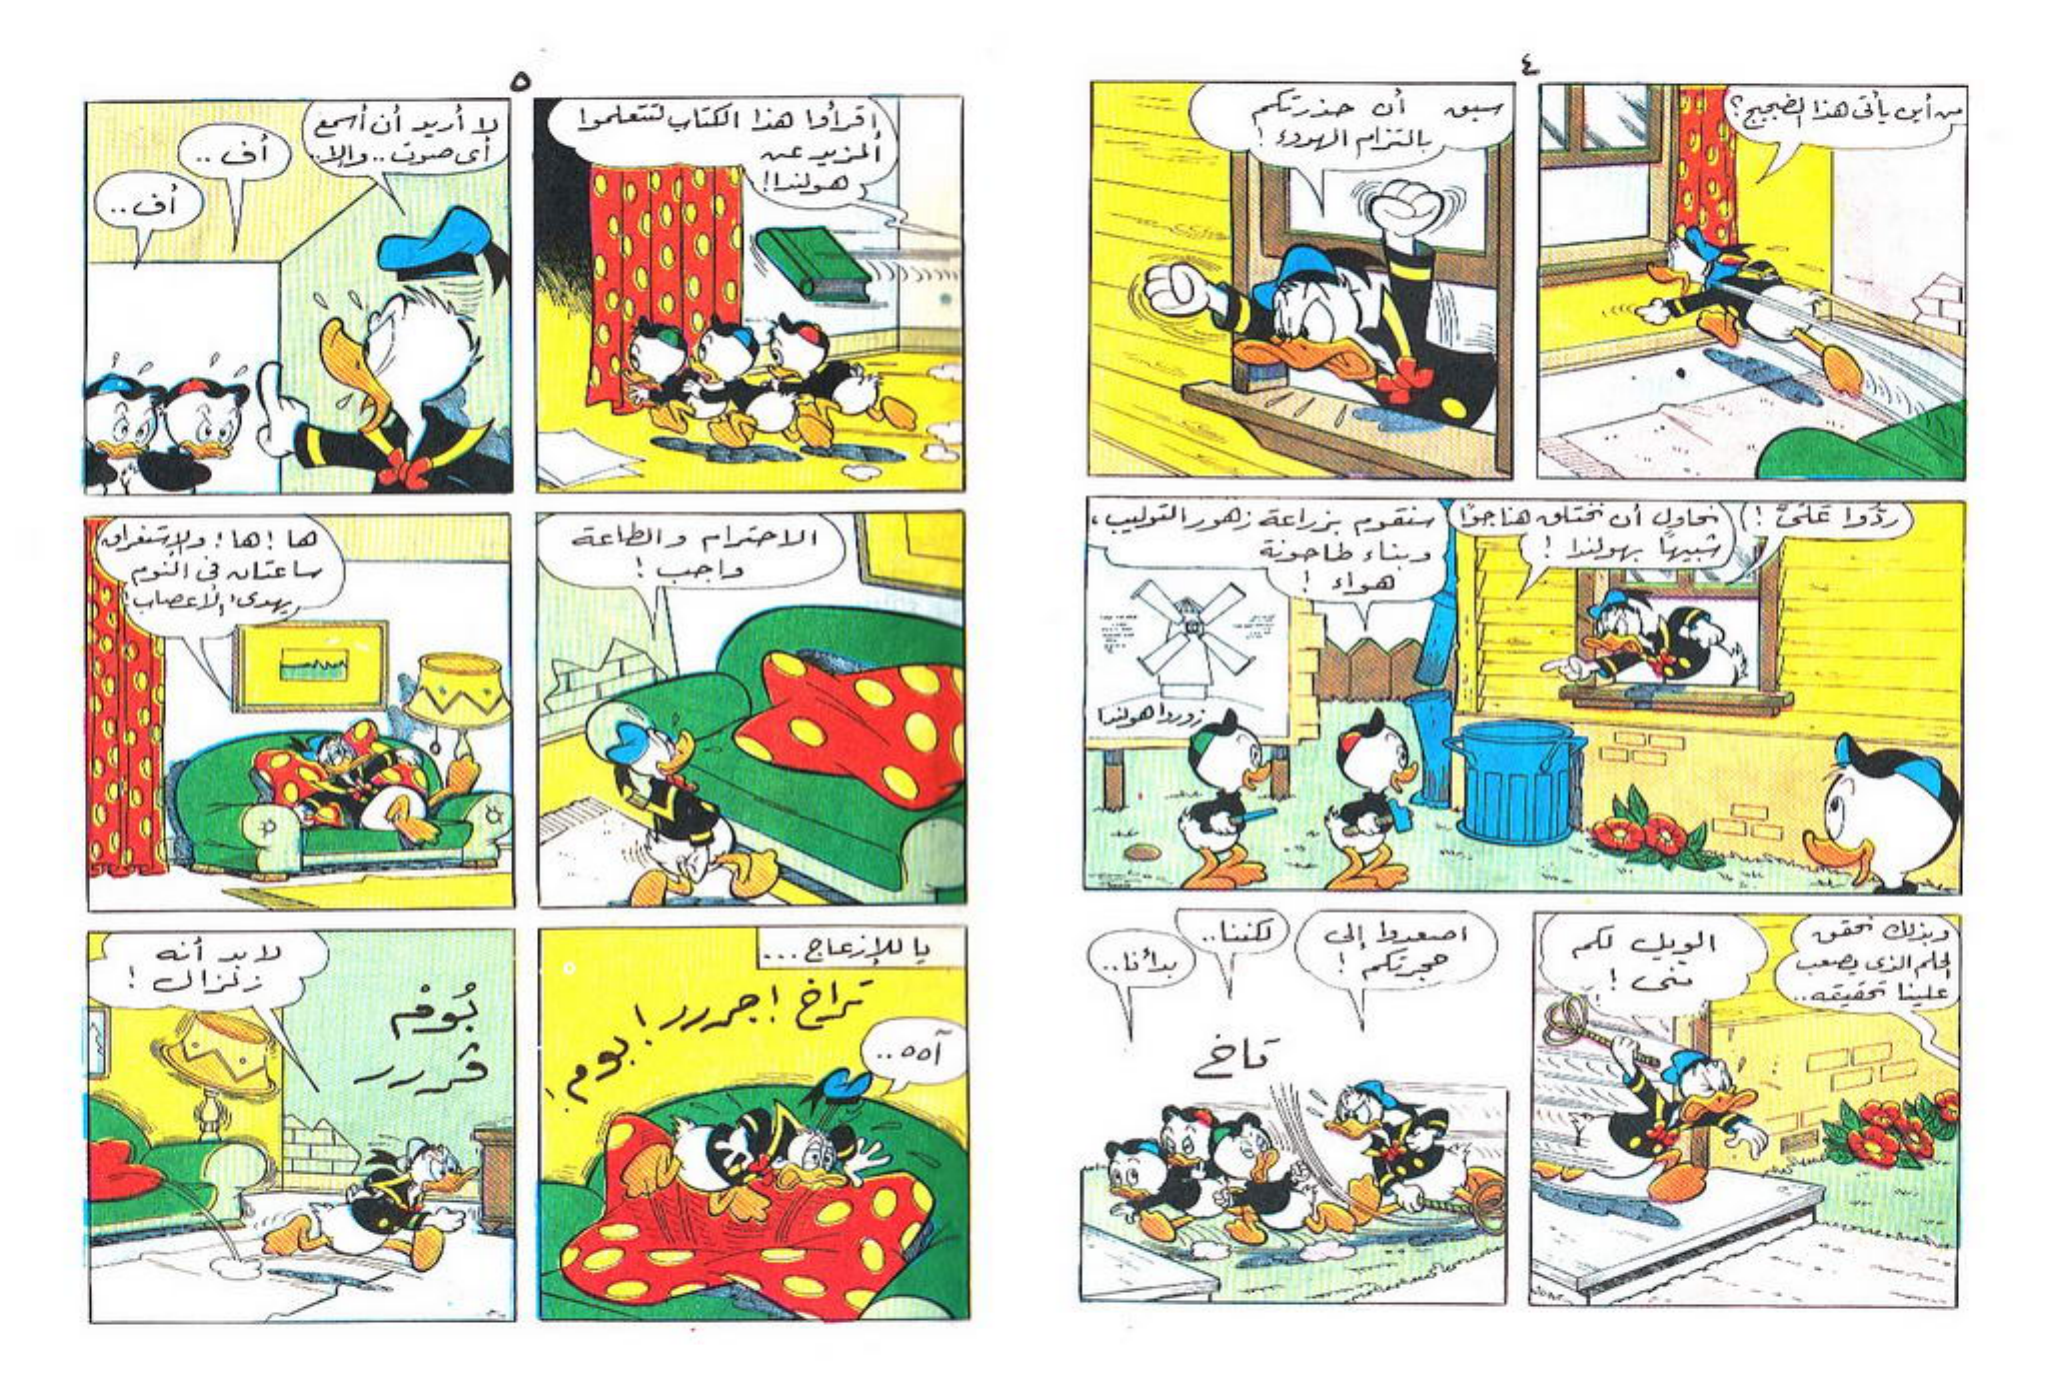 ٤
من أين يأتى هذا الضجيج؟
سبق أن حذرتكم
بالتزام الهدوء!
ردّوا عَلَىَّ!
نحاول أن نختلق هنا جوًا
شبيهًا بهولندا!
سنقوم بزراعة زهور التوليب،
وبناء طاحونة
هواء!
زوروا هولندا
وبذلك نحقق
الحلم الذى يصعب
علينا تحقيقه..
الويل لكم
منى!
اصعدوا إلى
حجرتكم!
لكننا..
بدأنا..
طاخ
٥
اقرأوا هذا الكتاب لتتعلموا
المزيد عن
هولندا!
لا أريد أن أسمع
أى صوت.. وإلا..
أف..
أف..
الاحترام والطاعة
واجب!
ها! ها! والاستغراق
ساعتان فى النوم
يهدىء الأعصاب!
يا للإزعاج...
تراخ! جررر! بوم!
آه ه..
لابد أنه
زلزال!
بُومْ
قررر